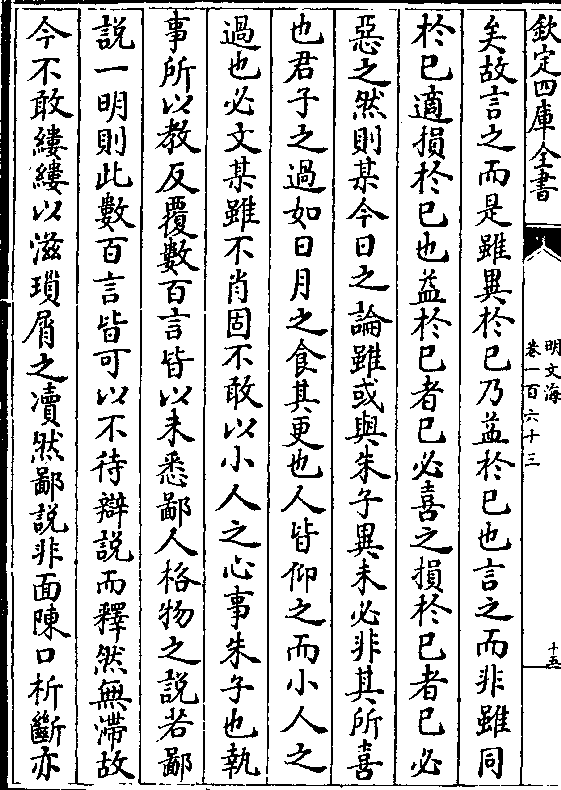 欽定四庫全書
明文海
卷一百六十三
十五
矣故言之而是雖異於已乃益於已也言之而非雖同
於已適損於已也益於已者已必喜之損於已者已必
惡之然則某今日之論雖或與朱子異未必非其所喜
也君子之過如日月之食其更也人皆仰之而小人之
過也必文某雖不肖固不敢以小人之心事朱子也執
事所以教反覆數百言皆以未悉鄙人格物之說若鄙
說一明則此數百言皆可以不待辯說而釋然無滯故
今不敢縷縷以滋瑣屑之瀆然鄙說非面陳口析斷亦